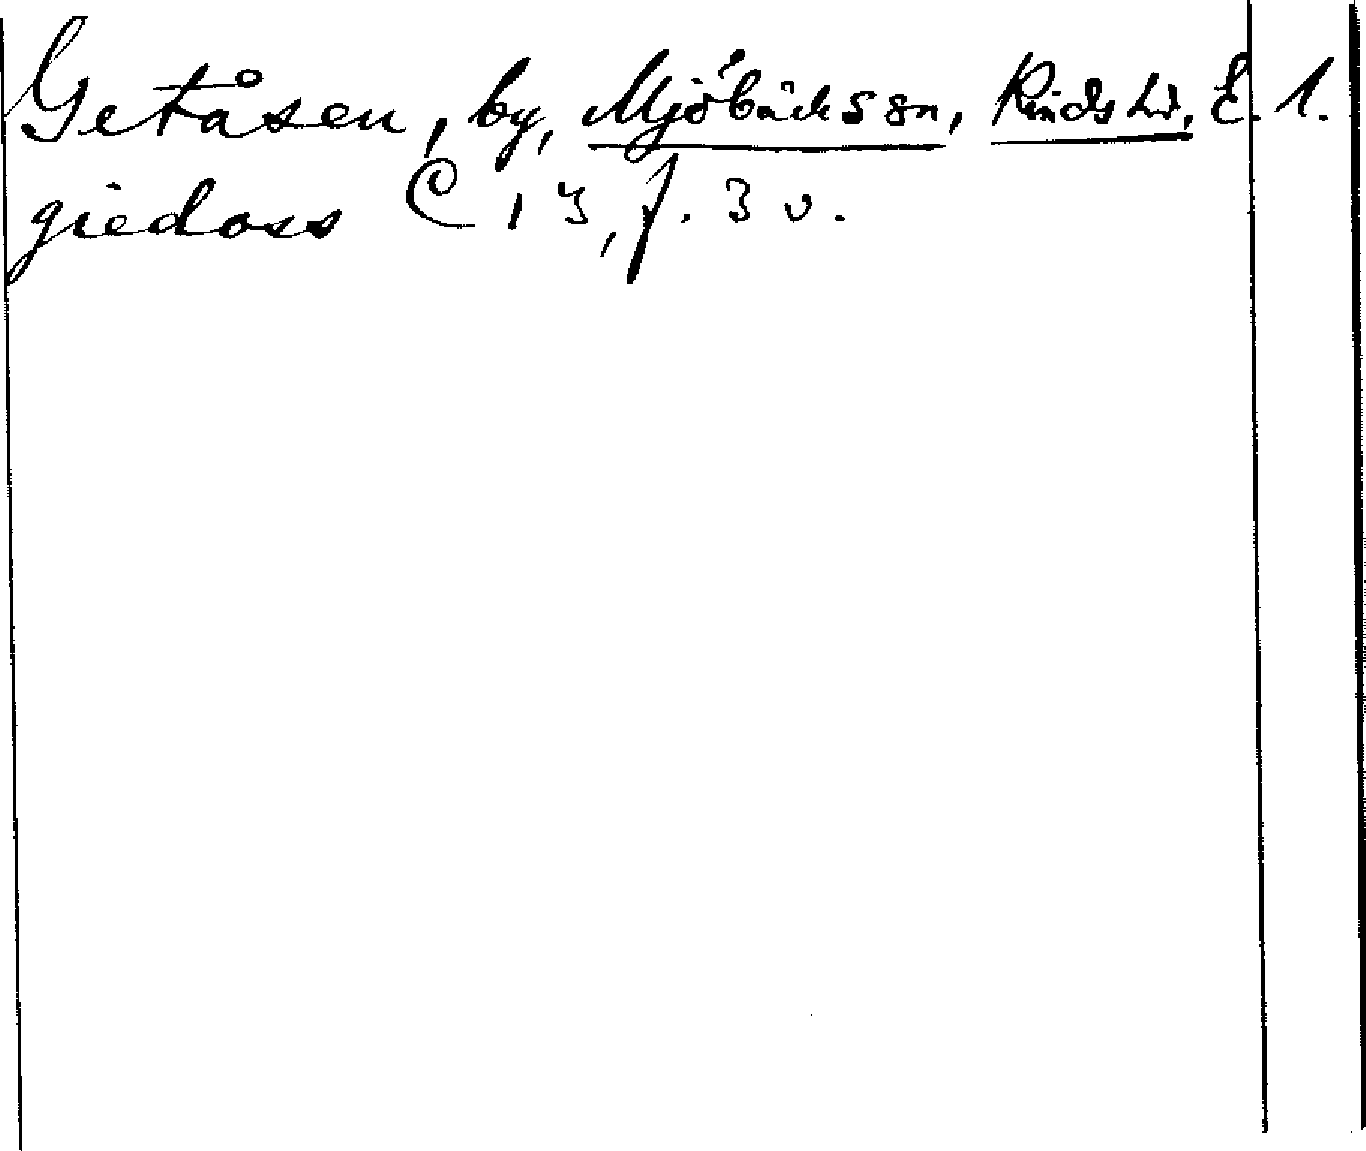 Getåsen, by, Mjöbäcks sn, Kinds hd, E. l.
giedoss C 13, f. 3 v.